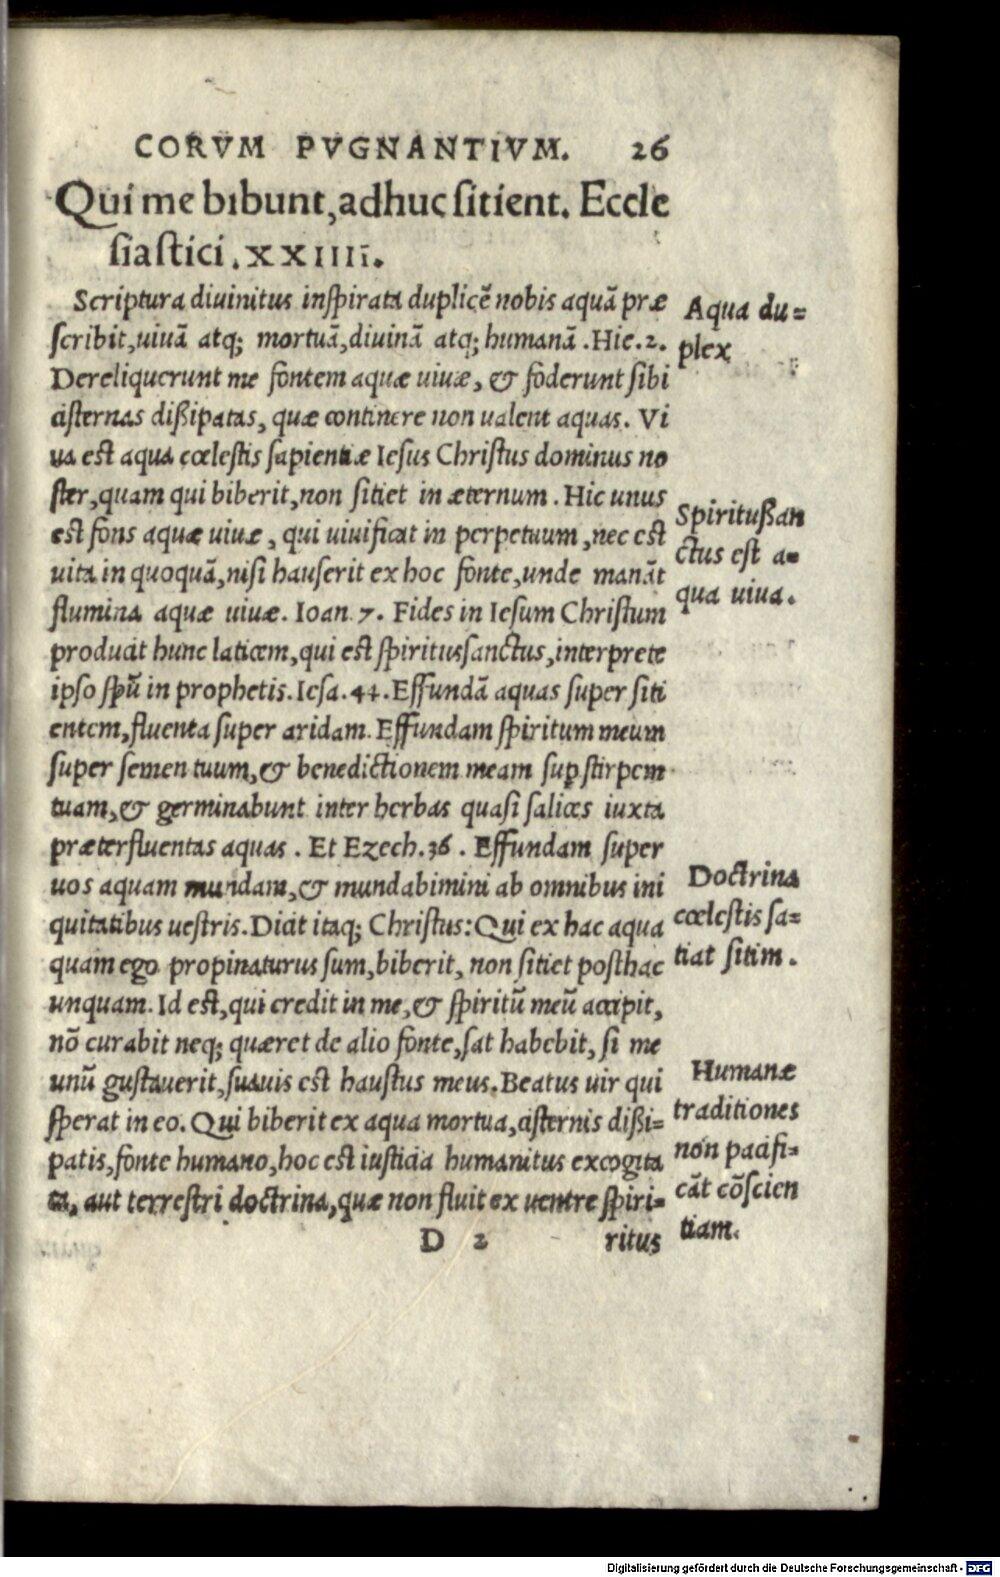 CORVM PVGNANTIVM. 26
Qui me bibunt, adhuc ſitient. Eccle
ſiaſtici. XXIIII.
Scriptura diuinitus inſpirata duplicẽ nobis aquã præ
ſcribit, uiuã atq; mortuã, diuinã atq; humanã. Hie. 2.
Dereliquerunt me fontem aquæ uiuæ, & foderunt ſibi
ciſternas dißipatas, quæ continere non ualent aquas. Vi
ua est aqua cœleſtis ſapientiæ Ieſus Chriſtus dominus no
ſter, quam qui biberit, non ſitiet in æternum. Hic unus
est fons aquæ uiuæ, qui uiuificat in perpetuum, nec est
uita in quoquã, niſi hauſerit ex hoc fonte, unde manãt
flumina aquæ uiuæ. Ioan. 7. Fides in Ieſum Chriſtum
producit hunc laticem, qui est ſpiritusſanctus, interprete
ipſo ſpũ in prophetis. Ieſa. 44. Effundã aquas ſuper ſiti
entem, fluenta ſuper aridam. Effundam ſpiritum meum
ſuper ſemen tuum, & benedictionem meam ſuꝑ ſtirpem
tuam, & germinabunt inter herbas quaſi ſalices iuxta
præterfluentas aquas. Et Ezech. 36. Effundam ſuper
uos aquam mundam, & mundabimini ab omnibus ini
quitatibus ueſtris. Dicit itaq; Chriſtus: Qui ex hac aqua
quam ego propinaturus ſum, biberit, non ſitiet poſthac
unquam. Id eſt, qui credit in me, & ſpiritũ meũ accipit,
nõ curabit neq; quæret de alio fonte, ſat habebit, ſi me
unũ guſtauerit, ſuauis est hauſtus meus. Beatus uir qui
ſperat in eo. Qui biberit ex aqua mortua, ciſternis dißi=
patis, fonte humano, hoc est iuſticia humanitus excogita
ta, aut terreſtri doctrina, quæ non fluit ex uentre ſpiri=
D 2 ritus
Aqua du=
plex
Spiritußan
ctus eſt a=
qua uiua.
Doctrina
cœleſtis ſa=
tiat ſitim.
Humanæ
traditiones
non pacifi=
cãt cõſcien
tiam.
Digitalisierung gefördert durch die Deutsche Forschungsgemeinschaft - DFG